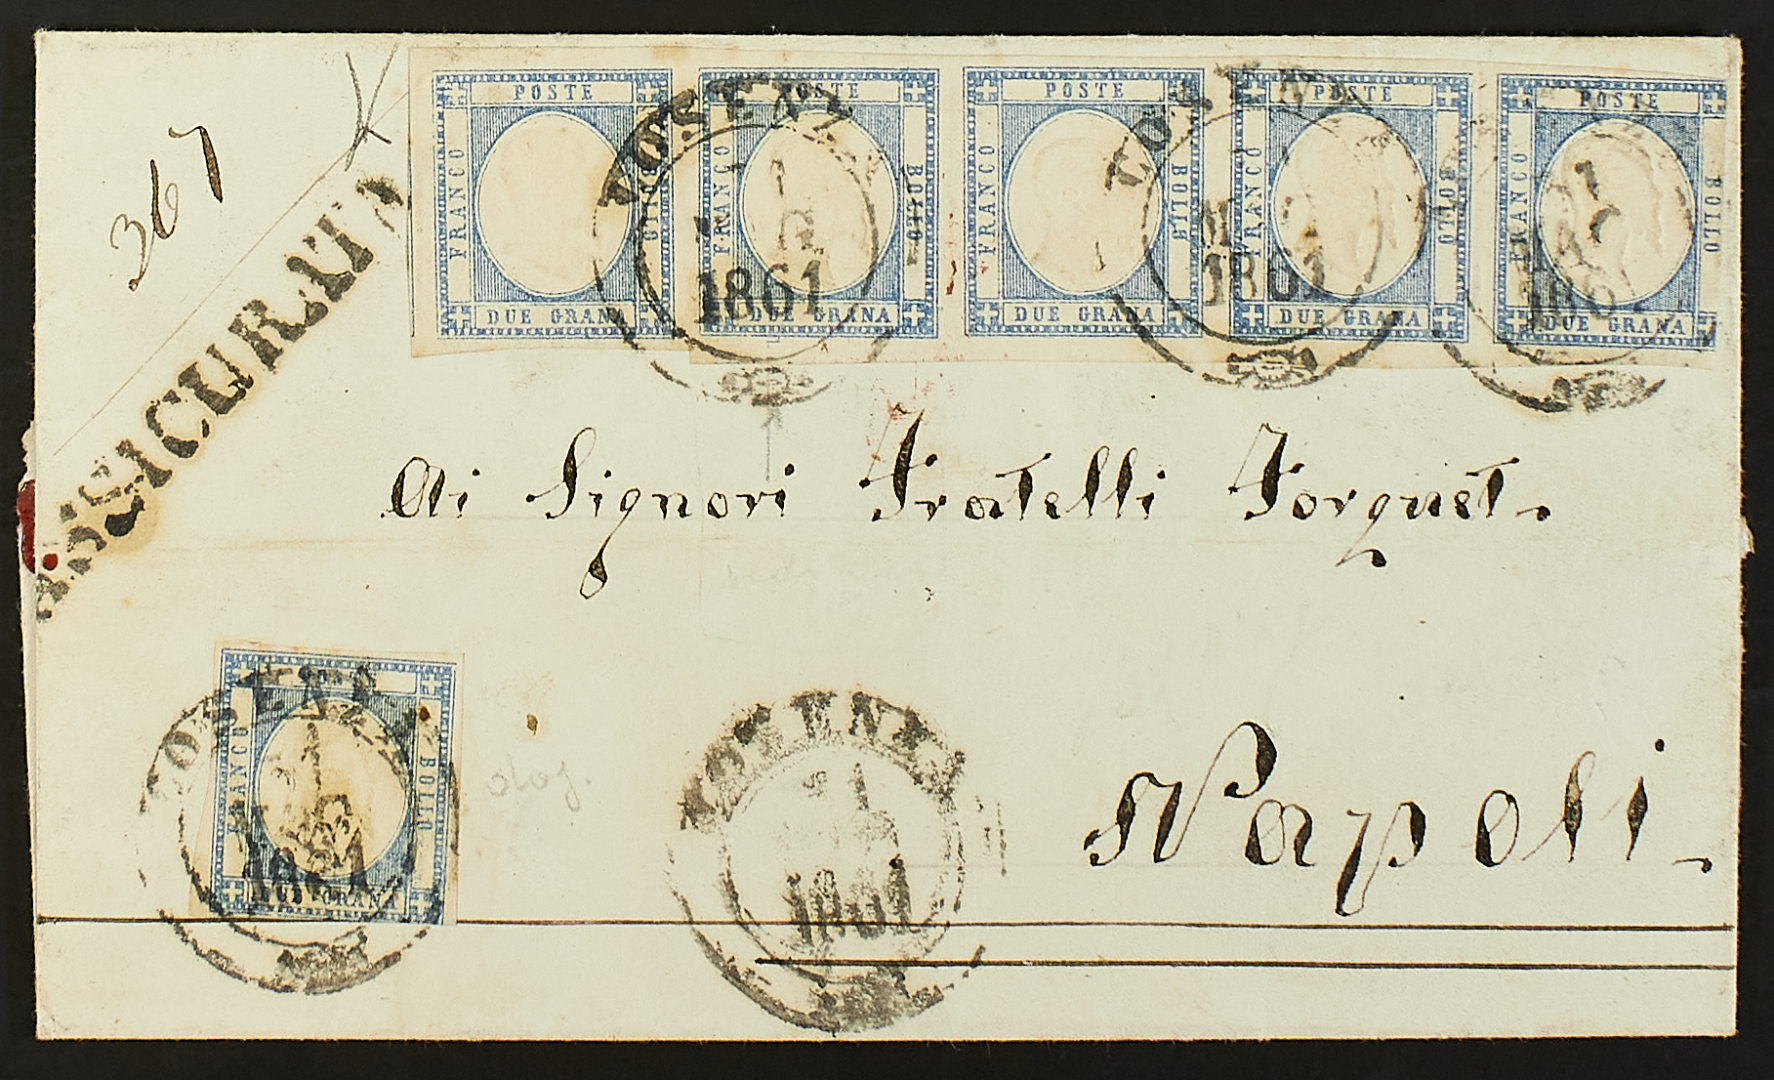 367
ASSICURATA
POSTE POSTE POSTE POSTE POSTE
FRANCO BOLLO FRANCO BOLLO FRANCO BOLLO FRANCO BOLLO FRANCO BOLLO
DUE GRANA DUE GRANA DUE GRANA DUE GRANA DUE GRANA
COSENZA
1861
COSENZA
1861
Ai Signori Fratelli Forquet.
Napoli.
FRANCO BOLLO
GRANA
COSENZA
1861
COSENZA
1861